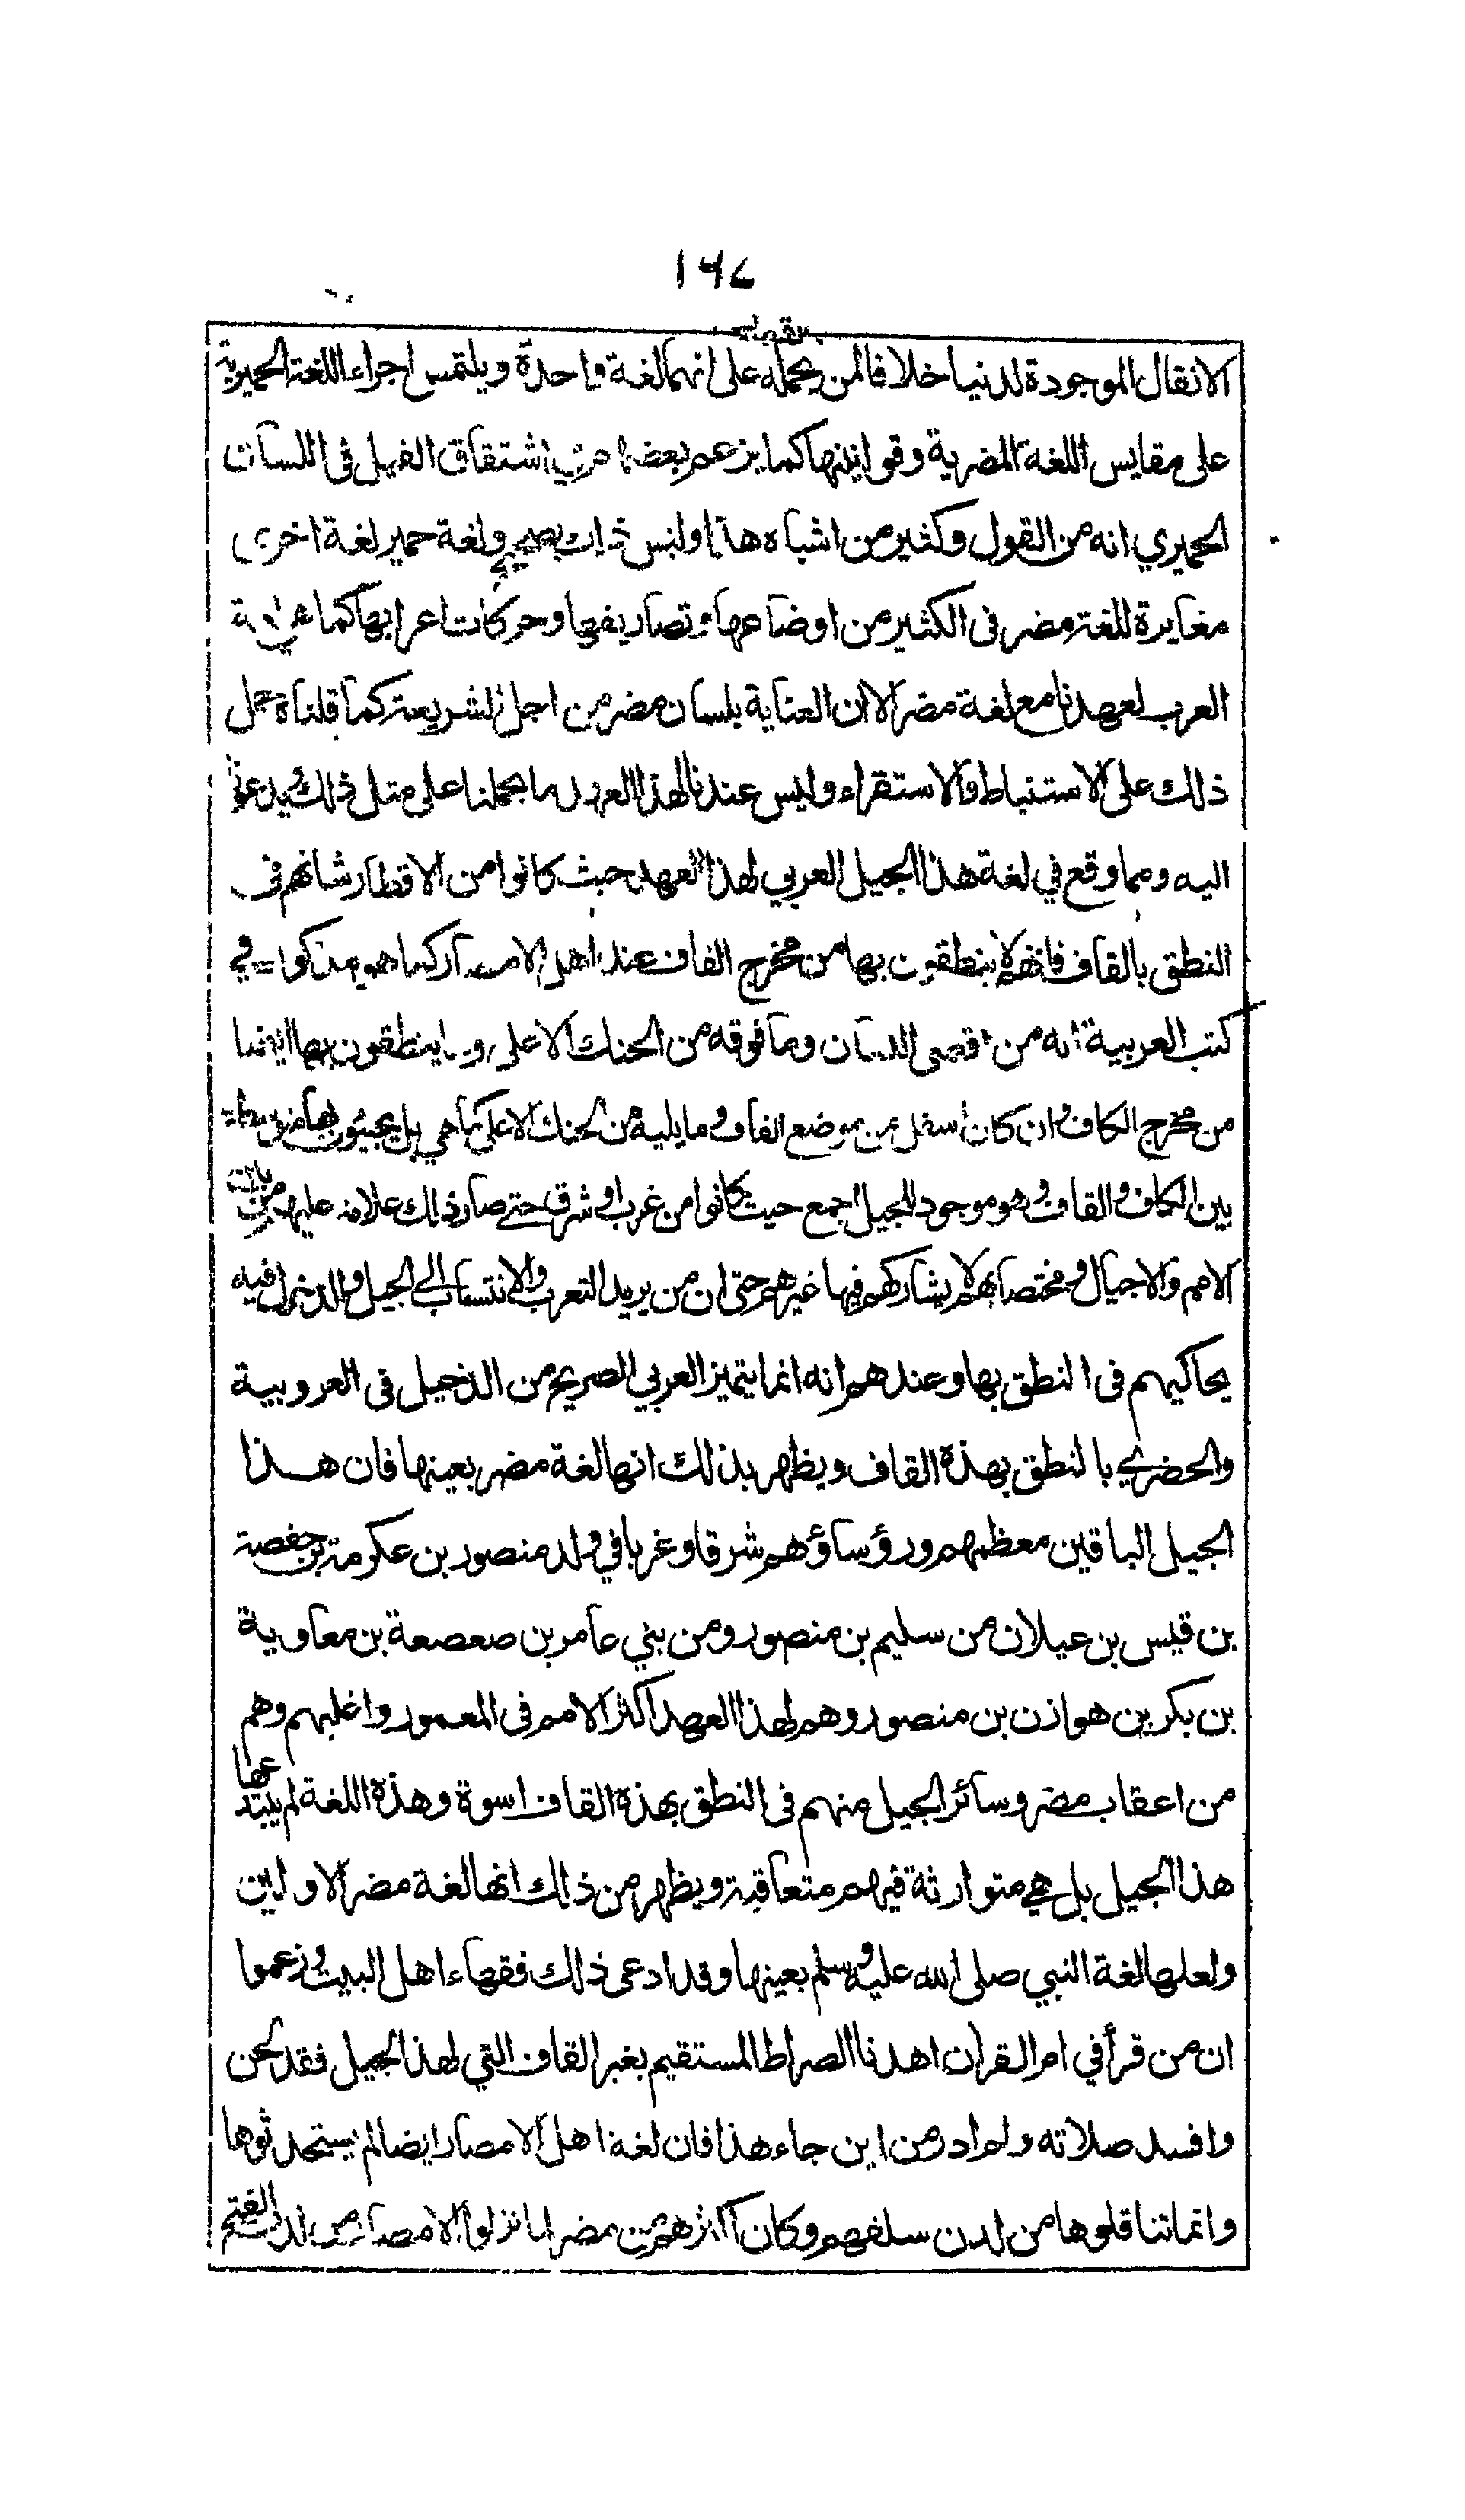 ١٦٧
القصر
الانقال الموجودة لدنيا خلافا لمن يحمله على انهما لغة واحدة ويلتمس اجراء اللغة الحميرية
على مقايس اللغة المضرية وقوانينها كما يزعم بعضهم من اشتقاق القيل فى اللسان
الحميري انه من القول وكثير من اشباه هذا وليس ذلك بصحيح ولغة حمير لغة اخرى
مغايرة للغة مضر فى الكثير من اوضاعها وتصاريفها وحركات اعرابها كما هي لغة
العرب لعهدنا مع لغة مضر الا ان العناية بلسان مضر من اجل الشريعة كما قلناه حمل
ذلك على الاستنباط والاستقراء وليس عندنا لهذا العهد ما يحملنا على مثل ذلك ويدعونا
اليه ومما وقع في لغة هذا الجيل العربي لهذا العهد حيث كانوا من الاقطار شانهم فى
النطق بالقاف فانهم لا ينطقون بها من مخرج القاف عند اهل الامصار كما هو مذكور في
كتب العربية انه من اقصى اللسان وما فوقه من الحنك الاعلى وما ينطقون بها ايضا
من مخرج الكاف وان كان اسفل من موضع القاف وما يليه من الحنك الاعلى كما هي بل يجيئون بها متوسطة
بين الكاف والقاف وهو موجود للجيل اجمع حيث كانوا من غرب او شرق حتى صار ذلك علامة عليهم من بين
الامم والاجيال ومختصا بهم لا يشاركهم فيها غيرهم حتى ان من يريد التعرب والانتساب الى الجيل والدخول فيه
يحاكيهم فى النطق بها وعندهم انه انما يتميز العربي الصريح من الدخيل فى العروبية
والحضري بالنطق بهذه القاف ويظهر بذلك انها لغة مضر بعينها فان هذا
الجيل الباقين معظمهم ورؤساؤهم شرقا وغربا في ولد منصور بن عكرمة بن حفصة
بن قيس بن عيلان من سليم بن منصور ومن بني عامر بن صعصعة بن معاوية
بن بكر بن هوازن بن منصور وهم لهذا العهد اكثر الامم فى المعمور واغلبهم وهم
من اعقاب مضر وسائر الجيل منهم فى النطق بهذه القاف اسوة وهذه اللغة لم يبتدعها
هذا الجيل بل هي متوارثة فيهم متعاقبة ويظهر من ذلك انها لغة مضر الاولين
ولعلها لغة النبي صلى الله عليه وسلم بعينها وقد ادعى ذلك فقهاء اهل البيت وزعموا
ان من قرأ في ام القران اهدنا الصراط المستقيم بغير القاف التي لهذا الجيل فقد لحن
وافسد صلاته ولم ادر من اين جاء هذا فان لغة اهل الامصار ايضا لم يستحدثوها
وانما تناقلوها من لدن سلفهم وكان اكثرهم من مضر لما نزلوا الامصار من لدن الفتح